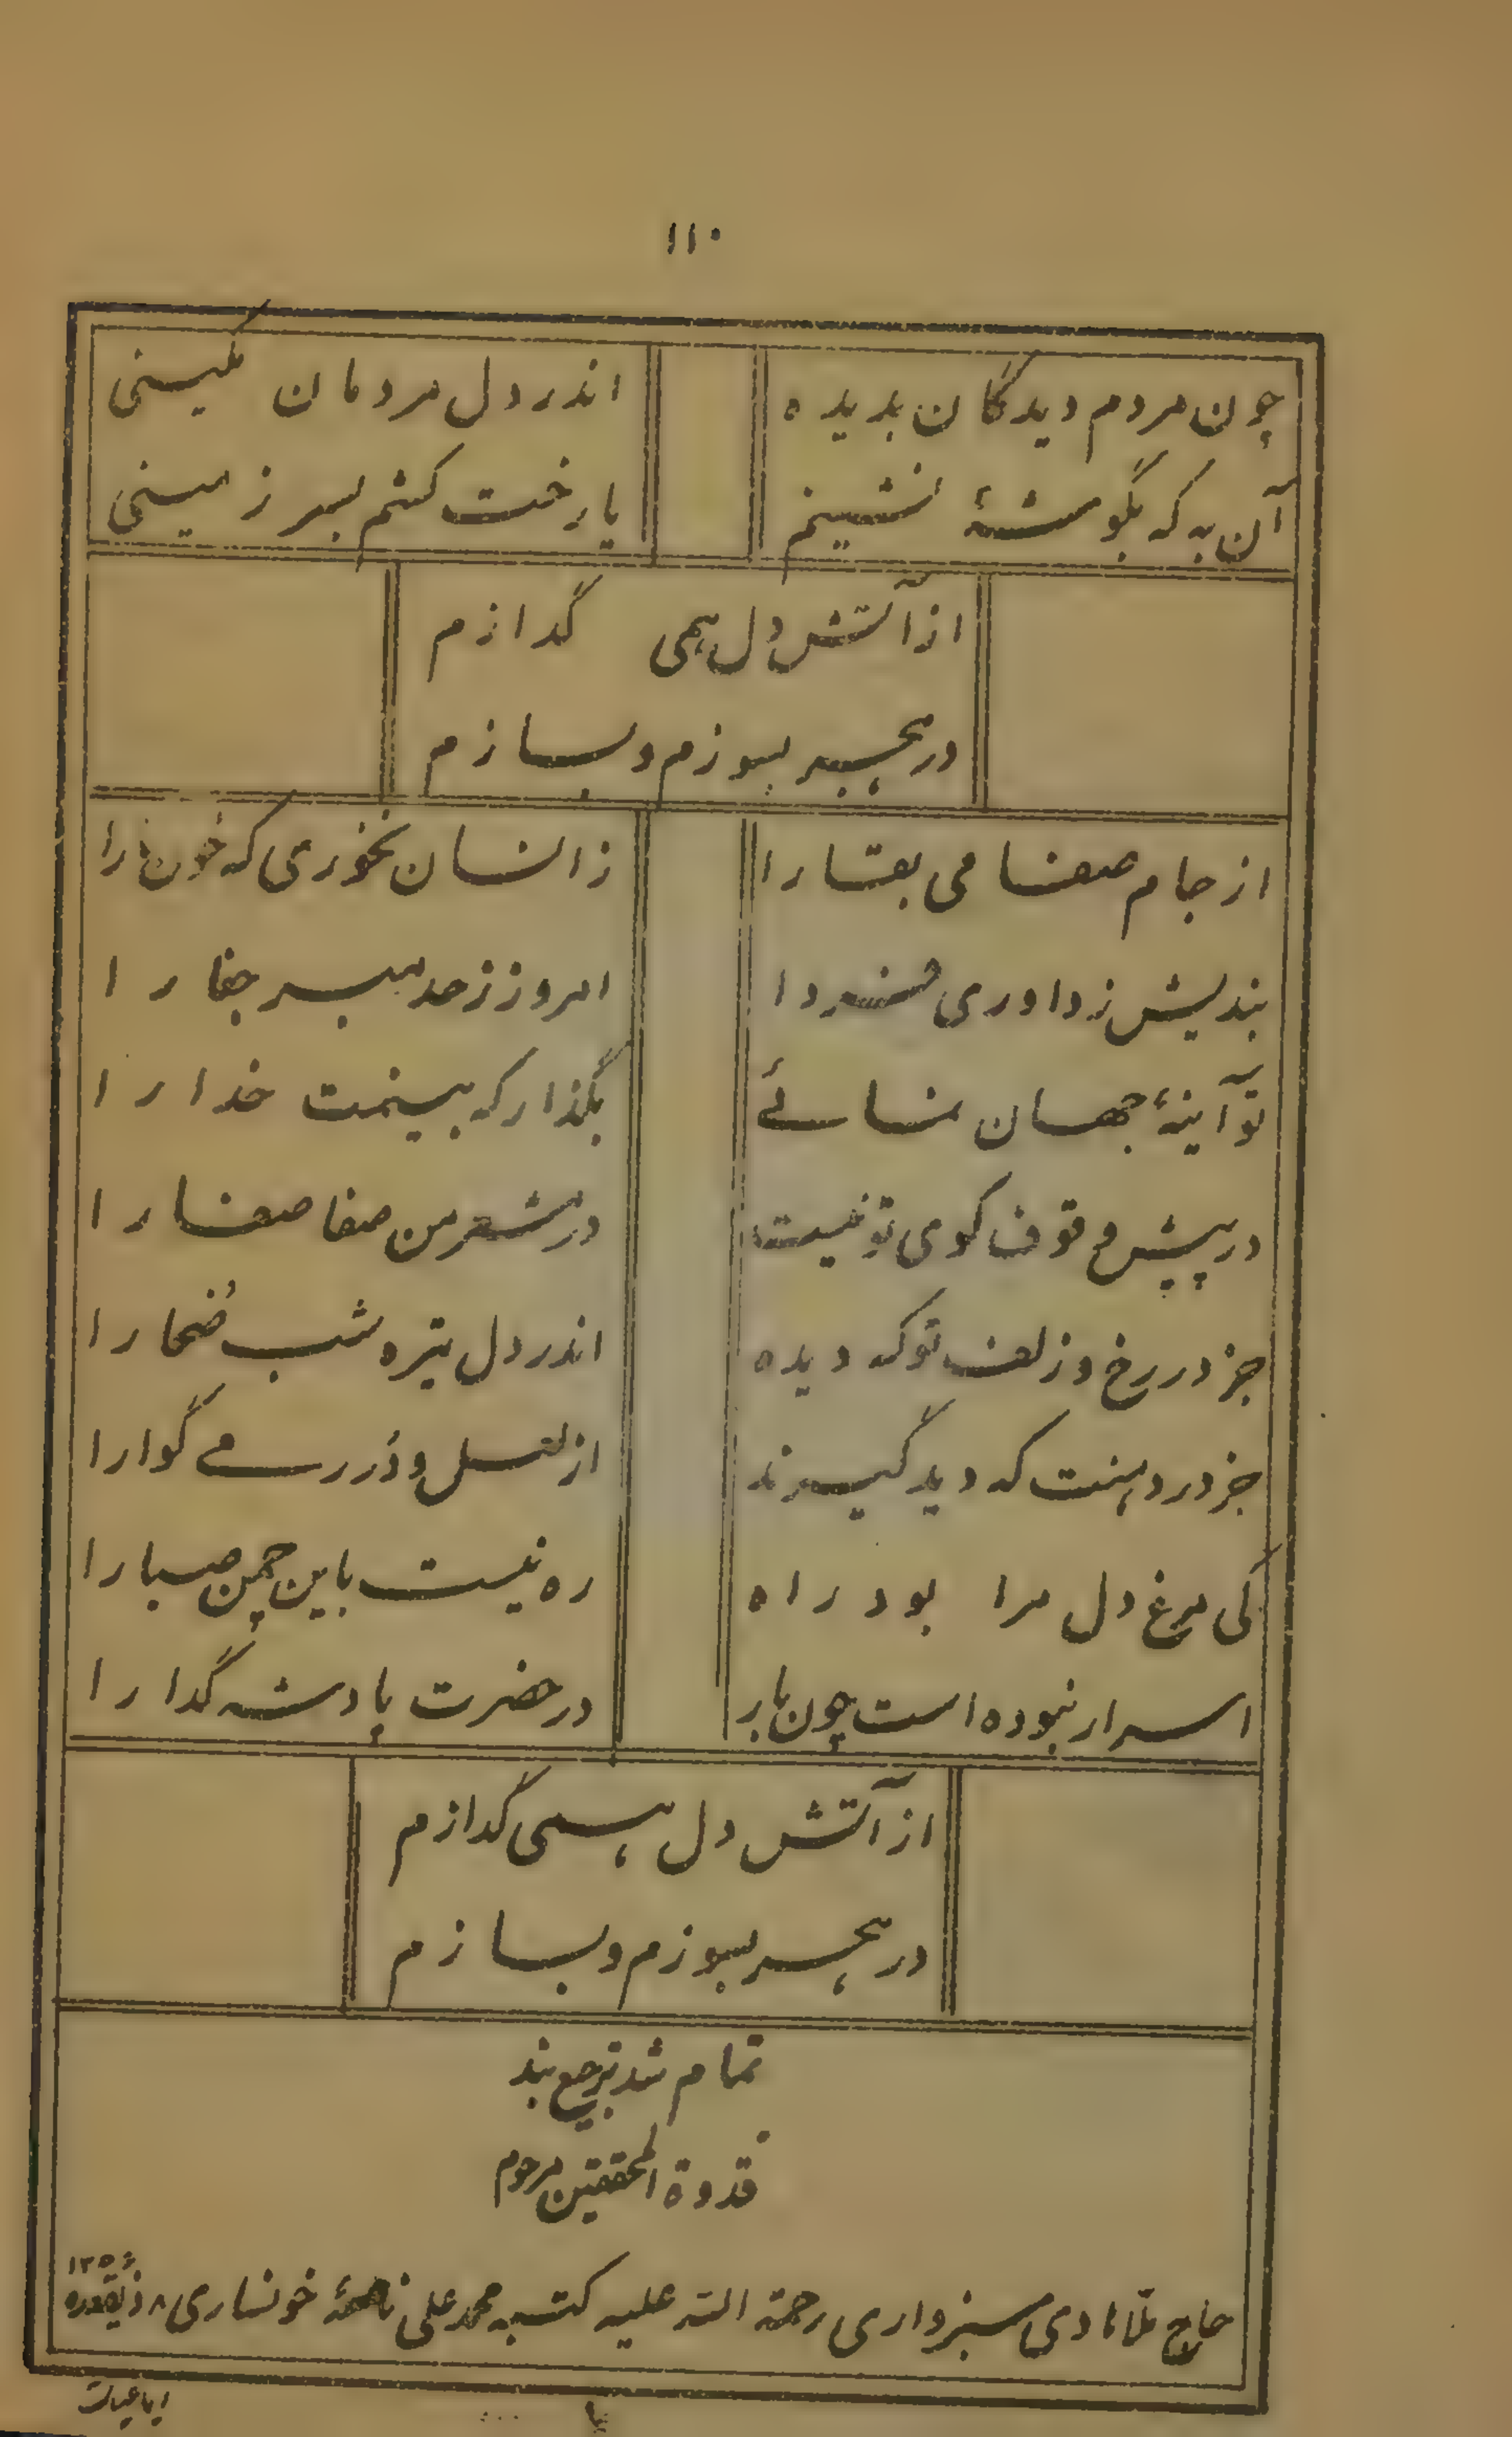 ۱۱۰
چون مردم دیدگان بدیده اندر دل مردمان مکینی
آن به که بگوشهٔ نشینم یا رخت کشم بسر زمینی
از آتش دل همی گدازم
در هجر بسوزم و بسازم
از جام صفا می بقا را زانسان نخوری که خون ما را
بندیش ز داوری فردا امروز ز حد مبر جفا را
تو آینهٔ جهان نمائے بگذار که بینمت خدا را
در پیش وقوف کوی تو نیست در مشعر من صفا صفا را
جز در رخ و زلف تو که دیده اندر دل تیره شب ضُحا را
جز در دهنت که دید گیرند از لعل و دُرر مے گوارا
کی مرغ دل مرا بود راه ره نیست باین چمن صبا را
اسرار نبوده است چون بار در حضرت پادشه گدا را
از آتش دل همی گدازم
در هجر بسوزم و بسازم
تمام شد ترجیع بند
قدوة المحققین مرحوم
حاج ملا هادی سبزواری رحمة الله علیه کتبه محمد علی خونساری ۸ ذیقعده
رباعیات